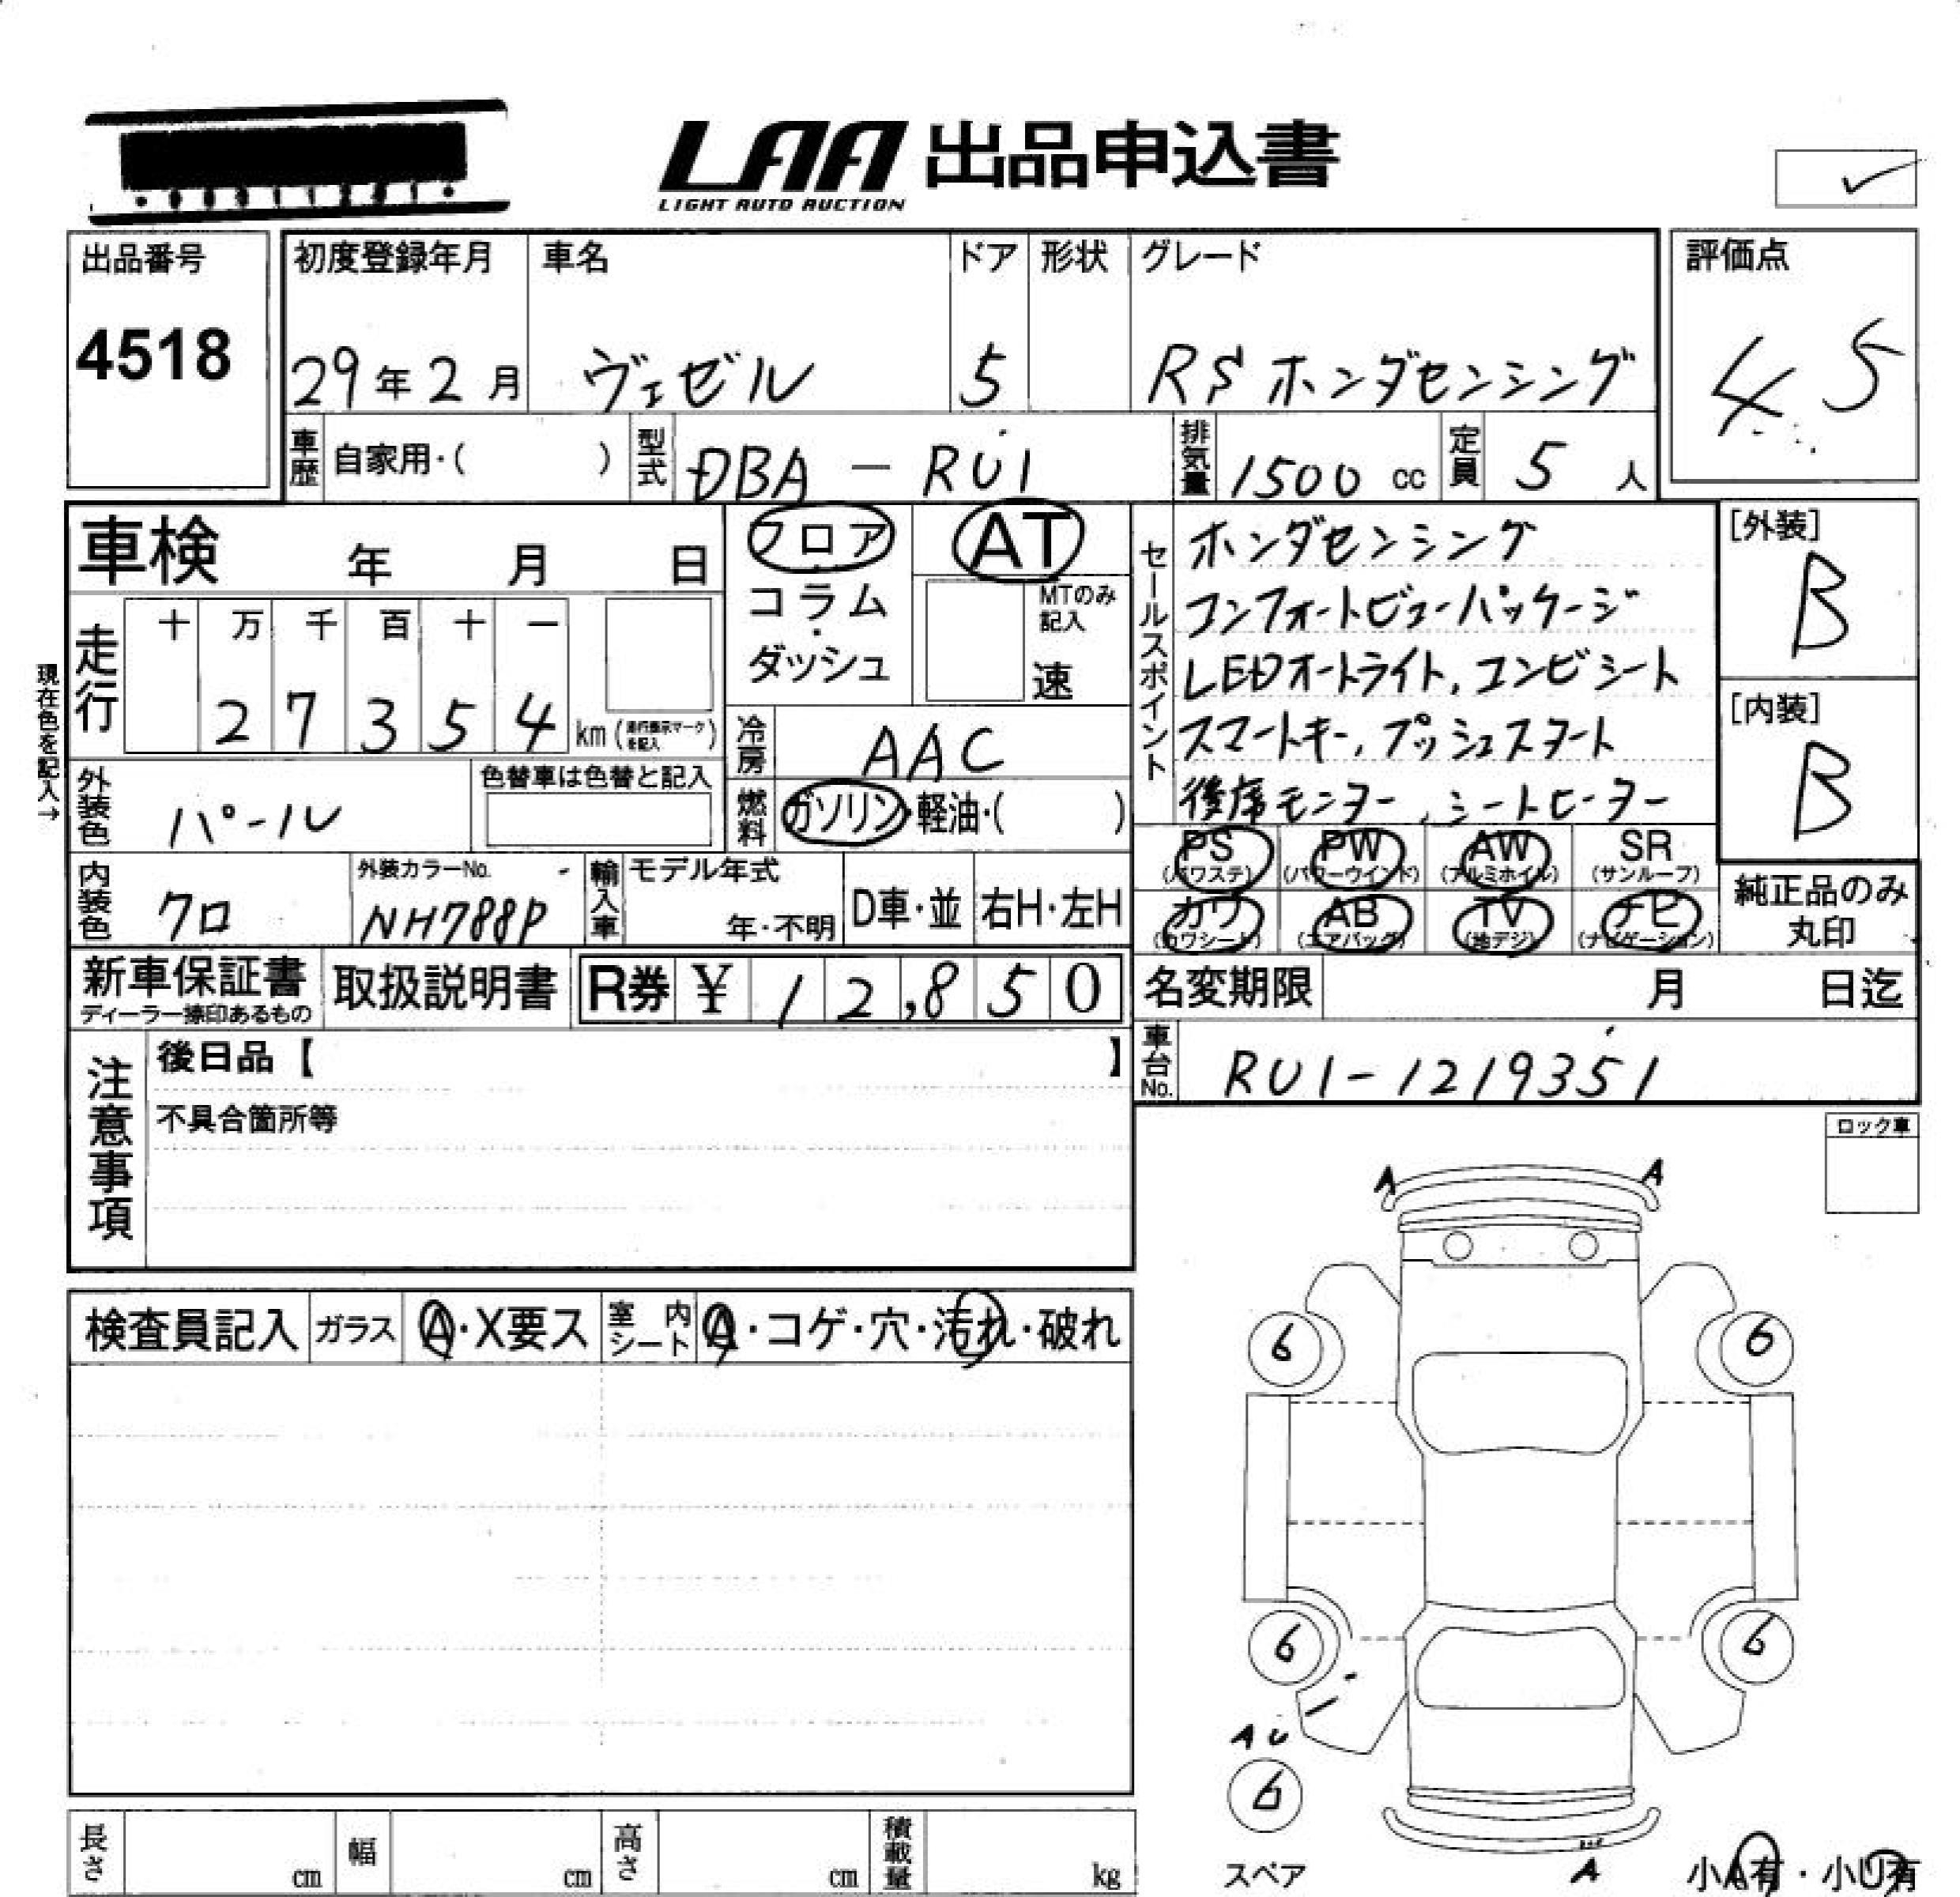 LAA 出品申込書
LIGHT AUTO AUCTION
✓
出品番号
4518
初度登録年月
29年2月
車名
ヴェゼル
ドア
5
形状
グレード
RSホンダセンシング
評価点
4.5
車歴 自家用・( )
型式 DBA-RU1
排気量 1500 cc
定員 5人
車検 年 月 日
フロア
コラム・
ダッシュ
AT
MTのみ
記入
速
セールスポイント
ホンダセンシング
コンフォートビューパッケージ
LEDオートライト, コンビシート
スマートキー, プッシュスタート
後席モニター, シートヒーター
[外装]
B
[内装]
B
現在色を記入→
走行
十 万 千 百 十 一
2 7 3 5 4 km (走行表示マークを記入)
冷房 AAC
燃料 ガソリン・軽油・( )
外装色 パール
色替車は色替と記入
内装色 クロ
外装カラーNo.
NH788P
輸入車
モデル年式
年・不明
D車・並
右H・左H
PS
(パワステ)
PW
(パワーウインド)
AW
(アルミホイル)
SR
(サンルーフ)
カワ
(カワシート)
AB
(エアバッグ)
TV
(地デジ)
ナビ
(ナビゲーション)
純正品のみ
丸印
新車保証書
ディーラー捺印あるもの
取扱説明書
R券 ¥ 12,850
名変期限 月 日迄
車台No. RU1-1219351
注意事項
後日品【 】
不具合箇所等
ロック車
検査員記入
ガラス
A・X要ス
室内
シート
A・コゲ・穴・汚れ・破れ
A A
6 6
6 6
A U
6
スペア
A
小A有・小U有
長さ cm
幅 cm
高さ cm
積載量 kg